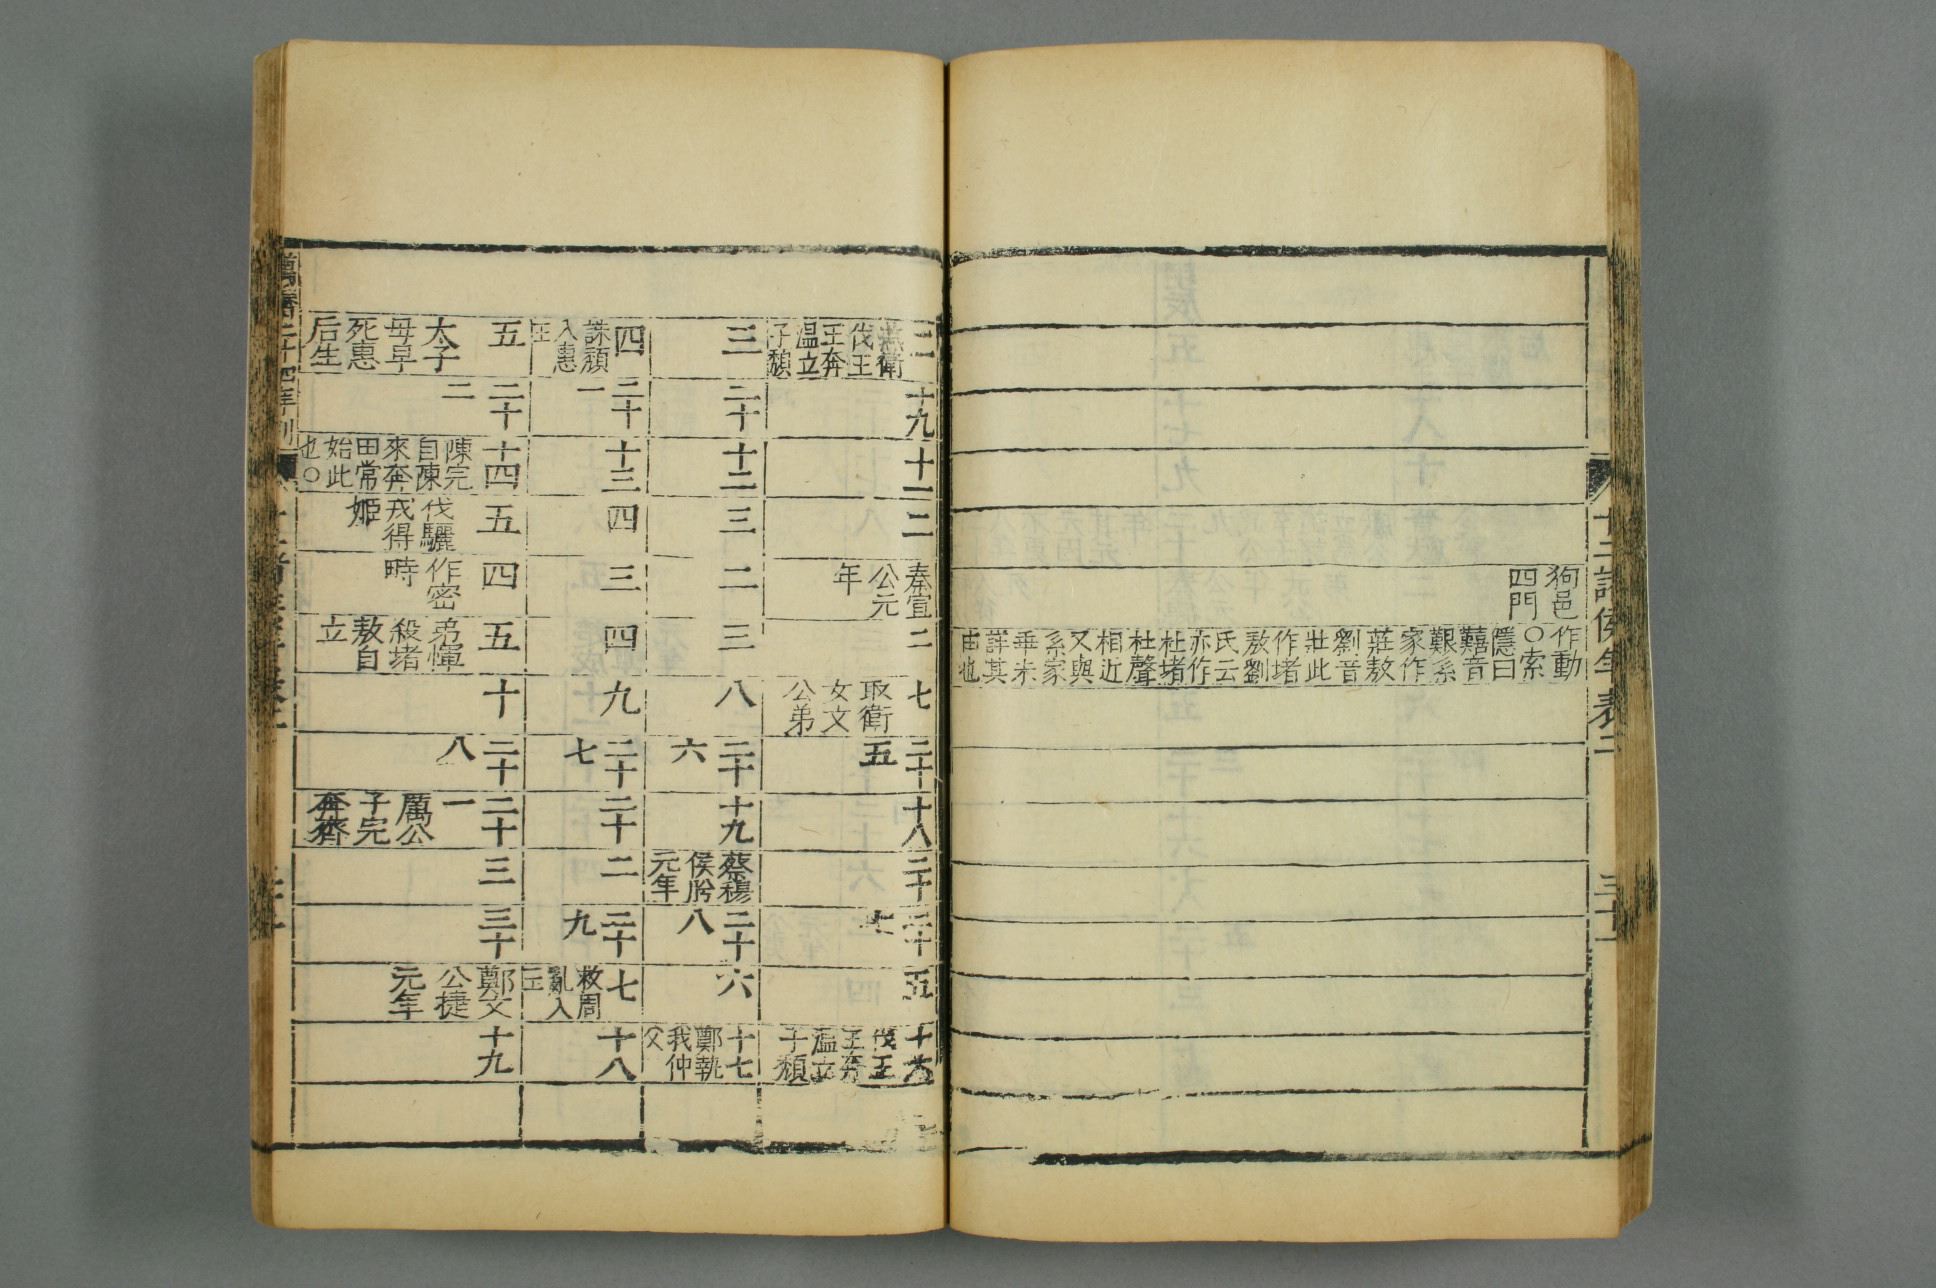 十二諸侯年表二
狗邑
四門
作動
○索
隱曰
囏音
艱系
家作
莊敖
劉音
壯此
作堵
敖劉
氏云
亦作
杜堵
杜聲
相近
又與
系家
乖未
詳其
由也
二
燕衛
伐王
王奔
溫立
子頹
十九
十一
二
秦宣
公元
年
二
七
取衛
女文
公弟
二十
五
十八
二十
二十
七
五
十六
伐王
王奔
溫立
子頹
三
二十
十二
三
二
三
八
二十
六
十九
蔡穆
侯肸
元年
二十
八
六
十七
鄭執
我仲
父
四
誅頹
入惠
王
二十
一
十三
四
三
四
九
二十
七
二十
二
二十
九
七
救周
亂入
王
十八
五
太子
母早
死惠
后生
二十
二
十四
陳完
自陳
來奔
田常
始此
也○
五
伐驪
戎得
姬
四
作密
時
五
弟惲
殺堵
敖自
立
十
二十
八
二十
一
厲公
子完
奔齊
三
三十
鄭文
公捷
元年
十九
萬曆二十四年刊